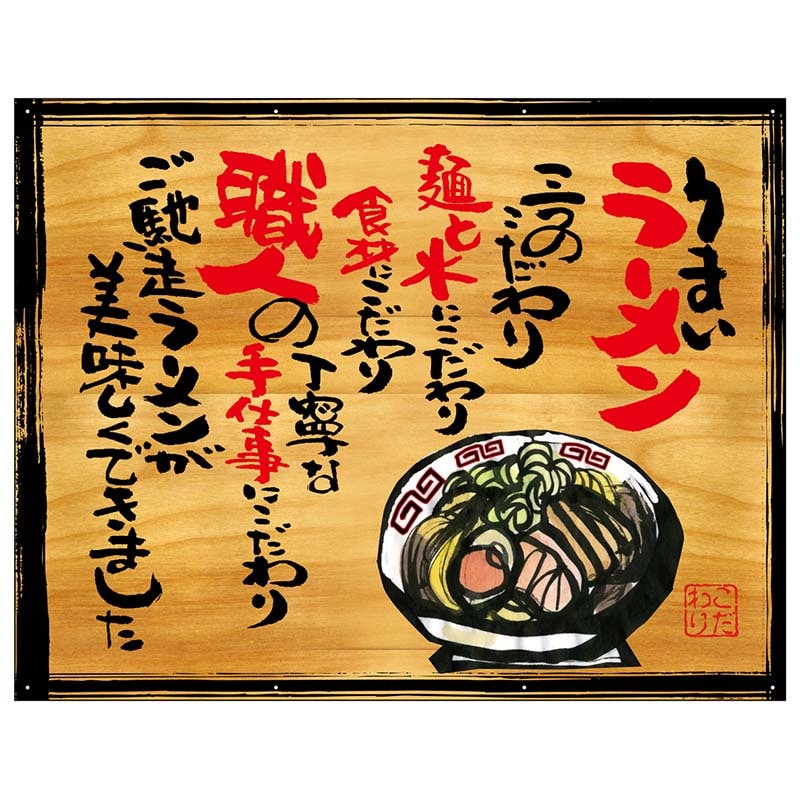 うまい
ラーメン
三つの
こだわり
麺と水にこだわり
食材にこだわり
職人の
丁寧な
手仕事にこだわり
ご馳走ラーメンが
美味しくできました
こだわり